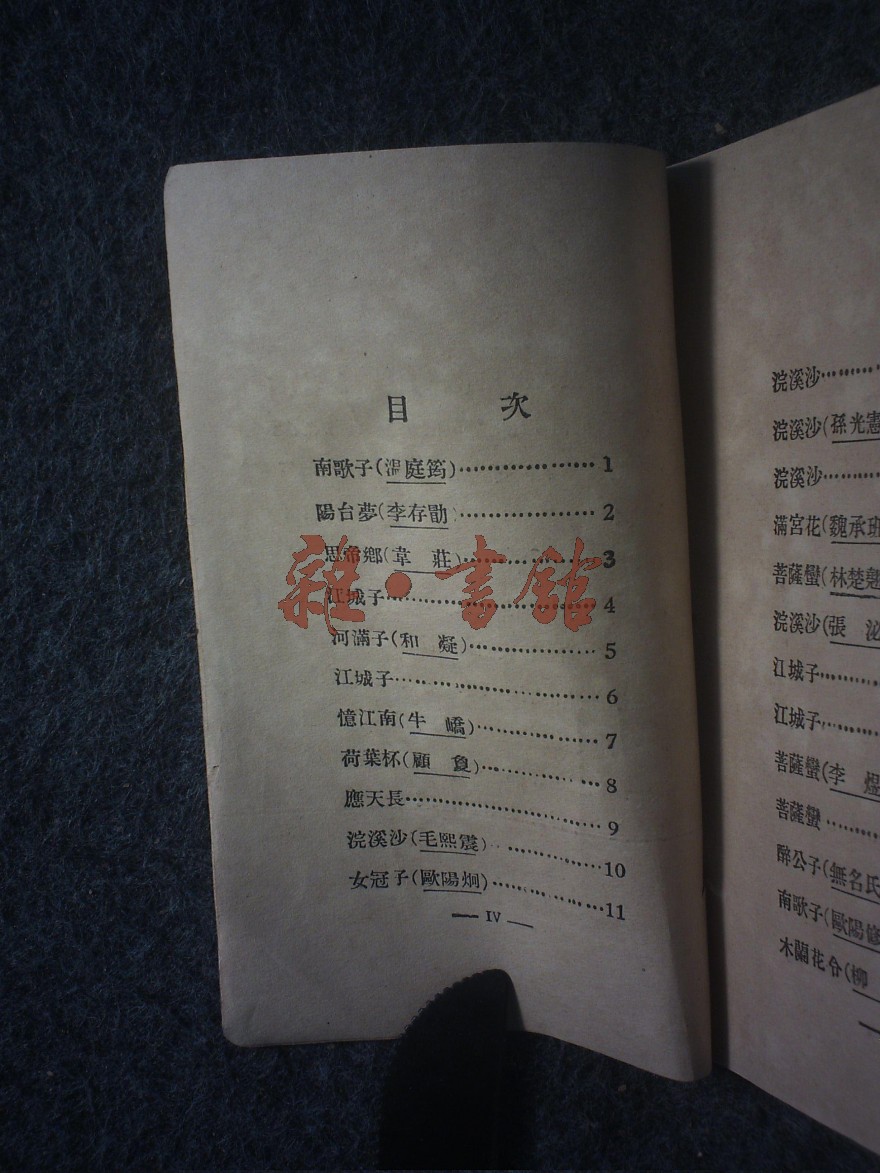 目 次
南歌子(溫庭筠)……………………1
陽台夢(李存勖)……………………2
思帝鄉(韋 莊)……………………3
江城子……………………4
河滿子(和 凝)……………………5
江城子……………………6
憶江南(牛嶠)……………………7
荷葉杯(顧敻)……………………8
應天長……………………9
浣溪沙(毛熙震)……………………10
女冠子(歐陽炯)……………………11
— IV —
雜·書館
浣溪沙………
浣溪沙(孫光憲
浣溪沙………
滿宮花(魏承班
菩薩蠻(林楚翹
浣溪沙(張 泌
江城子………
江城子………
菩薩蠻(李 煜
菩薩蠻………
醉公子(無名氏
南歌子(歐陽修
木蘭花令(柳